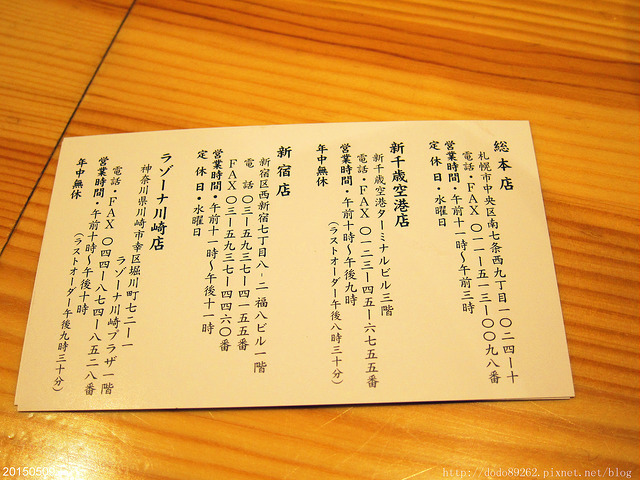 総本店
札幌市中央区南七条西九丁目一〇二四ー十
電話・FAX 〇一一ー五一三ー〇〇九八番
営業時間・午前十一時～午前三時
定休日・水曜日
新千歳空港店
新千歳空港ターミナルビル三階
電話・FAX 〇一二三ー四五ー六七五五番
営業時間・午前十時～午後九時
（ラストオーダー午後八時三十分）
年中無休
新宿店
新宿区西新宿七丁目八ー二福八ビル一階
電話 〇三ー五九三七ー四一五五番
FAX 〇三ー五九三七ー四四六〇番
営業時間・午前十一時～午後十一時
定休日・水曜日
ラゾーナ川崎店
神奈川県川崎市幸区堀川町七二ー一
ラゾーナ川崎プラザ一階
電話・FAX 〇四四ー八七四ー八五二八番
営業時間・午前十時～午後十時
（ラストオーダー午後九時三十分）
年中無休
http://dodo89262.pixnet.net/blog